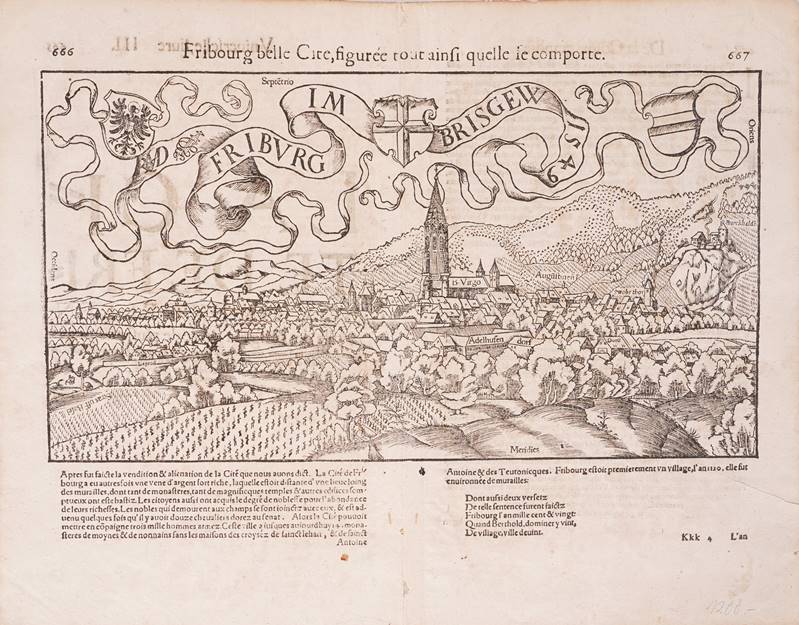 666
Fribourg belle Cite, figurée tout ainsi quelle se comporte.
667
Septētrio
FRIBVRG
IM
BRISGEW
1549
Oriens
Occidens
Burckhald
15 Virgo
Augustiner
Adelhusen dorf
Meridies
Apres fut faicte la vendition & alienation de la Cité que nous auons dict. La Cité de Fri-
bourg a eu autresfois vne vene d'argent fort riche, laquelle estoit distante d'vne lieue loing
des murailles, dont tant de monasteres, tant de magnificques temples & autres edifices som-
ptueux ont esté bastiz. Les citoyens aussi ont acquis le degré de noblesse pour l'abondance
de leurs richesses. Les nobles qui demourent aux champs se sont ioinctz auec eux, & est ad-
uenu quelques fois qu'il y auoit douze cheualiers dorez au senat. Alors la Cité pouuoit
mettre en cōpaigne trois mille hommes armez. Ceste ville a iusques auiourdhuy 14. mona-
steres de moynes & de nonnains sans les maisons des croysez de sainct Iehan, & de sainct
Antoine
Antoine & des Teutonicques. Fribourg estoit premierement vn village, l'an 1120. elle fut
enuironnée de murailles:
Dont aussi deux versetz
De telle sentence furent faictz
Fribourg l'an mille cent & vingt
Quand Berthold, dominer y vint,
De village, ville deuint.
Kkk 4 L'an